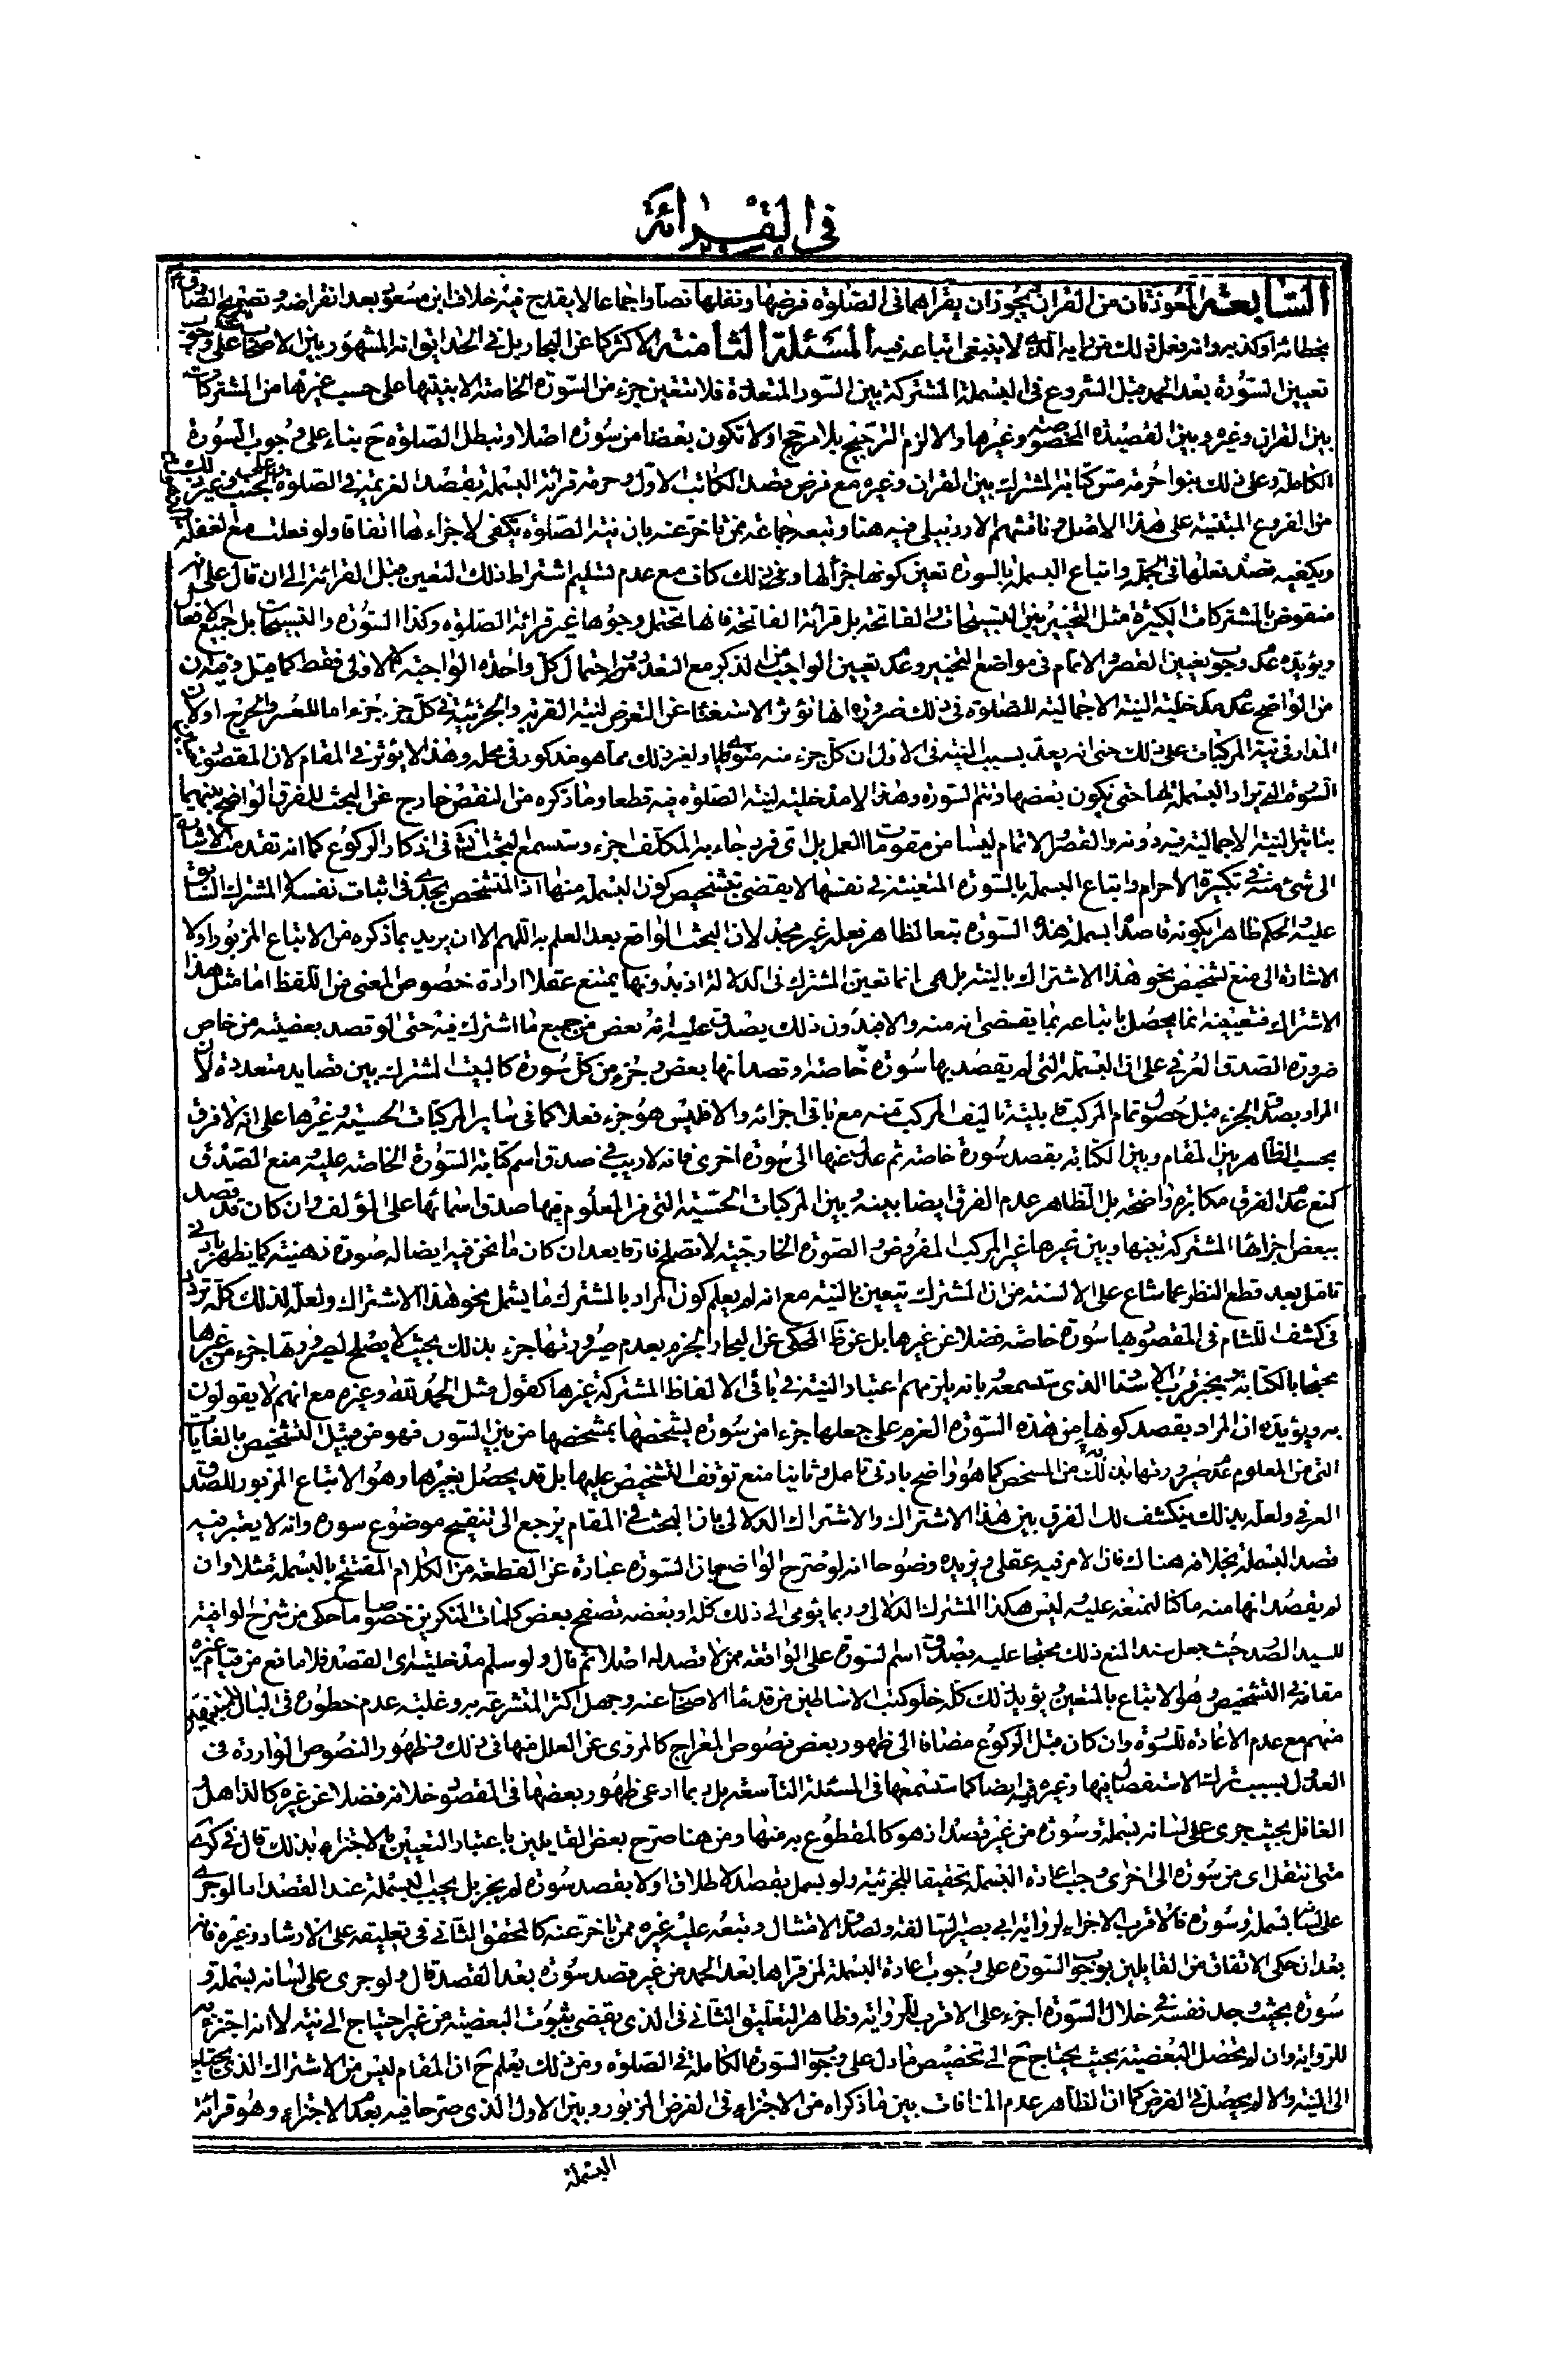 في القرائة
السابعة المعوذتان من القران يجوز ان يقرأهما في الصلوة فرضها ونفلها نصا واجماعا لا يقدح فيه خلاف ابن مسعود بعد انقراضه و تصريح الصادق
بخطائه او كذبه وانه فعل ذلك من رايه الذي لا ينبغي اتباعه فيه المسئلة الثامنة الاكثر كما عن البحار بل في الحدائق انه المشهور بين الاصحاب على وجوب
تعيين السورة بعد الحمد قبل الشروع في البسملة المشتركة بين السور المتعددة فلا تتعين جزء من السورة الخاصة الا بنيتها على حسب غيرها من المشتركات
بين القران وغيره وبين القصيدة المخصوصة وغيرها والا لزم الترجيح بلا مرجح او لا تكون بعضا من سورة اصلا وتبطل الصلوة ح بناء على وجوب السورة
الكاملة وعلى ذلك بنوا حرمة مس كتابة المشترك بين القران وغيره مع فرض قصد الكاتب الاول وحرمة قرائة البسملة بقصد العزيمة في الصلوة وعلى الجنب وغير ذلك
من الفروع المبتنية على هذا الاصل وناقشهم الاردبيلي فيه هنا وتبعه جماعة ممن تاخر عنه بان نية الصلوة تكفي لاجزاءها اتفاقا ولو فعلت مع الغفلة
ويكفيه قصد فعلها في الجملة واتباع البسملة بالسورة تعين كونها جزأ لها ونحو ذلك كاف مع عدم تسليم اشتراط ذلك التعين قبل القرائة الى ان قال على انه
منقوض بالمشتركات الكثيرة مثل التخيير بين التسبيحات والفاتحة بل قرائة الفاتحة فانها تحتمل وجوها غير قرائة الصلوة وكذا السورة والتسبيحات بل جميع الافعال
ويؤيده عدم وجوب تعيين القصر والاتمام في مواضع التخيير وعدم تعيين الواجب من الذكر مع التعدد من احتمال كل واحدة الواجبة كالاولى فقط كما قيل وفيه ان
من الواضح عدم مدخلية النية الاجمالية للصلوة في ذلك ضرورة انها تؤثر الاستغناء عن التعرض لنية القربة والجزئية في كل جزء جزء اما للعسر والحرج او لان
المدار في نية المركبات على ذلك حتى انه يعد بسبب النية في الاول ان كل جزء منه منوي كذلك او لغير ذلك مما هو مذكور في محله وهذا لا يؤثر في المقام لان المقصود
السورة التي يراد البسملة لها حتى تكون بعضها وتتم السورة وهذا لا مدخلية لنية الصلوة فيه قطعا وما ذكره من النقض خارج عن البحث للفرق الواضح بينهما
بتاثير النية الاجمالية فيه دونه والقصر والاتمام ليسا من مقومات العمل بل اي فرد جاء به المكلف اجزء وستسمع البحث في اذكار الركوع كما انه تقدم منا الاشارة
الى شئ منه في تكبيرة الاحرام واتباع البسملة بالسورة المتعينة في نفسها لا يقتضي بتشخيص كون البسملة منها اذ المتشخص يجدي في اثبات نفسه لا المشترك السابق
عليه والحكم ظاهرا بكونه قاصدا بسملة هذه السورة تبعا لظاهر فعله غير مجد لان البحث الواقع بعد العلم به اللهم الا ان يريد بما ذكره من الاتباع المزبور اولا
الاشارة الى منع تشخيص نحو هذا الاشتراك بالنية بل هي انما تعين المشترك في الدلالة اذ بدونها يمتنع عقلا ارادة خصوص المعنى من اللفظ اما مثل هذا
الاشتراك فتعينه انما يحصل باتباعه بما يقتضي انه منه والا فبدون ذلك يصدق عليه انه بعض من جميع ما اشترك فيه حتى لو قصد بعضيته من خاص
ضرورة الصدق العرفي على ان البسملة التي لم يقصد بها سورة خاصة او قصد انها بعض وجزء من كل سورة كالبيت المشترك بين قصايد متعددة لان
المراد بصدق الجزء قبل حصول تمام المركب قابليته تاليف المركب منه مع باقي اجزائه والا فليس هو جزء فعلا كما في ساير المركبات الحسية وغيرها على انه لا فرق
بحسب الظاهر بين المقام وبين الكتابة بقصد سورة خاصة ثم عدل عنها الى سورة اخرى فانه لا ريب في صدق اسم كتابة السورة الخاصة عليه ومنع الصدق
كمنع عدم الفرق مكابرة واضحة بل الظاهر عدم الفرق ايضا بينه وبين المركبات الحسية التي من المعلوم فيها صدق اسمائها على المؤلف وان كان قد قصد
ببعض اجزائها المشتركة بينها وبين غيرها غير المركب المفروض والصورة الخارجية لا تصلح فارقا بعد ان كان ما نحن فيه ايضا له صورة ذهنية كما يظهر بادنى
تامل بعد قطع النظر عما شاع على الالسنة من ان المشترك يتعين بالنية مع انه لم يعلم كون المراد بالمشترك ما يشمل نحو هذا الاشتراك ولعله لذلك كله تردد
في كشف اللثام في المقصود بها سورة خاصة فضلا عن غيرها بل عن ظ المحكي عن البحار الجزم بعدم صيرورتها جزء بذلك بحيث لا يصلح لصيرورتها جزء من غيرها
محتجا بالكتابة وبخبر قرب الاسناد الذي ستسمعه بانه يلزمهم اعتبار النية في باقي الالفاظ المشتركة غيرها كقول مثل الحمد لله وغيره مع انهم لا يقولون
به ويؤيده ان المراد بقصد كونها من هذه السورة العزم على جعلها جزءا من سورة يشخصها بمشخصها من بين السور فهو من قبيل التشخيص بالغايات
التي من المعلوم عدم صيرورتها بذلك من المشخص كما هو واضح بادنى تامل وثانيا منع توقف التشخيص عليها بل قد يحصل بغيرها وهو الاتباع المزبور للصدق
العرفي ولعله بذلك ينكشف لك الفرق بين هذا الاشتراك والاشتراك الدلالي بان البحث في المقام يرجع الى تنقيح موضوع سورة وانه لا يعتبر فيه
قصد البسملة بخلافه هناك فان الامر فيه عقلي ويزيده وضوحا انه لو صرح الواضع بان السورة عبارة عن القطعة من الكلام المفتتح بالبسملة مثلا وان
لم يقصد انها منه ما كنا لنمنعه عليه وليس هكذا المشترك الدلالي وربما يومي الى ذلك كله او بعضه تصفح بعض كلمات المنكرين خصوصا ما حكي من شرح الوافية
للسيد الصدر حيث جعل سند المنع ذلك محتجا عليه بصدق اسم السورة على الواقعة ممن لا قصد له اصلا ثم قال ولو سلم مدخلية القصد فلا مانع من قيام غيره
مقامه في التشخيص وهو الاتباع بالمتعين ويؤيد ذلك كله خلو كتب الاساطين من قدماء الاصحاب عنه وجهل اكثر المتشرعة به وغلبة عدم خطوره في البال
منهم مع عدم الاعادة للسورة وان كان قبل الركوع مضافا الى ظهور بعض نصوص المعراج كالمروي عن العلل منها في ذلك وظهور النصوص الواردة في
العدول بسبب ترك الاستفصال فيها وغيره فيه ايضا كما ستسمعها في المسئلة التاسعة بل ربما ادعي ظهور بعضها في المقصود خلافه فضلا عن غيره كالذاهل
الغافل بحيث جرى على لسانه بسملة وسورة من غير قصد اذ هو كالمقطوع به منها ومن هنا صرح بعض القايلين باعتبار التعيين بالاجتزاء بذلك قال في كرى
متى انتقل اي من سورة الى اخرى وجب اعادة البسملة تحقيقا للجزئية ولو بسمل بقصد الاطلاق او لا بقصد سورة لم يجز بل يجب البسملة عند القصد اما لو جرى
على لسانه بسملة وسورة فالاقرب الاجزاء لرواية ابي بصير السالفة ولصدق الامتثال وتبعه عليه غيره ممن تاخر عنه كالمحقق الثاني في تعليقه على الارشاد وغيره فانه
بعد ان حكى الاتفاق من القايلين بوجوب السورة على وجوب اعادة البسملة لمن قراها بعد الحمد من غير قصد سورة بعد القصد قال ولو جرى على لسانه بسملة و
سورة بحيث وجد نفسه في خلال السورة اجزء على الاقرب للرواية وظاهر التعليق الثاني في الذي يقتضي بثبوت البعضية من غير احتياج الى نية لا انه اجتزئ به
للرواية وان لم تحصل البعضية بحيث يحتاج ح الى تخصيص ما دل على وجوب السورة الكاملة في الصلوة ومن ذلك يعلم ح ان المقام ليس من الاشتراك الذي يحتاج
الى النية والا لم يحصل في الفرض كما ان الظاهر عدم المنافات بين ما ذكراه من الاجتزاء في الفرض المزبور وبين الاول الذي صرحا فيه بعدم الاجتزاء وهو قرائة
البسملة